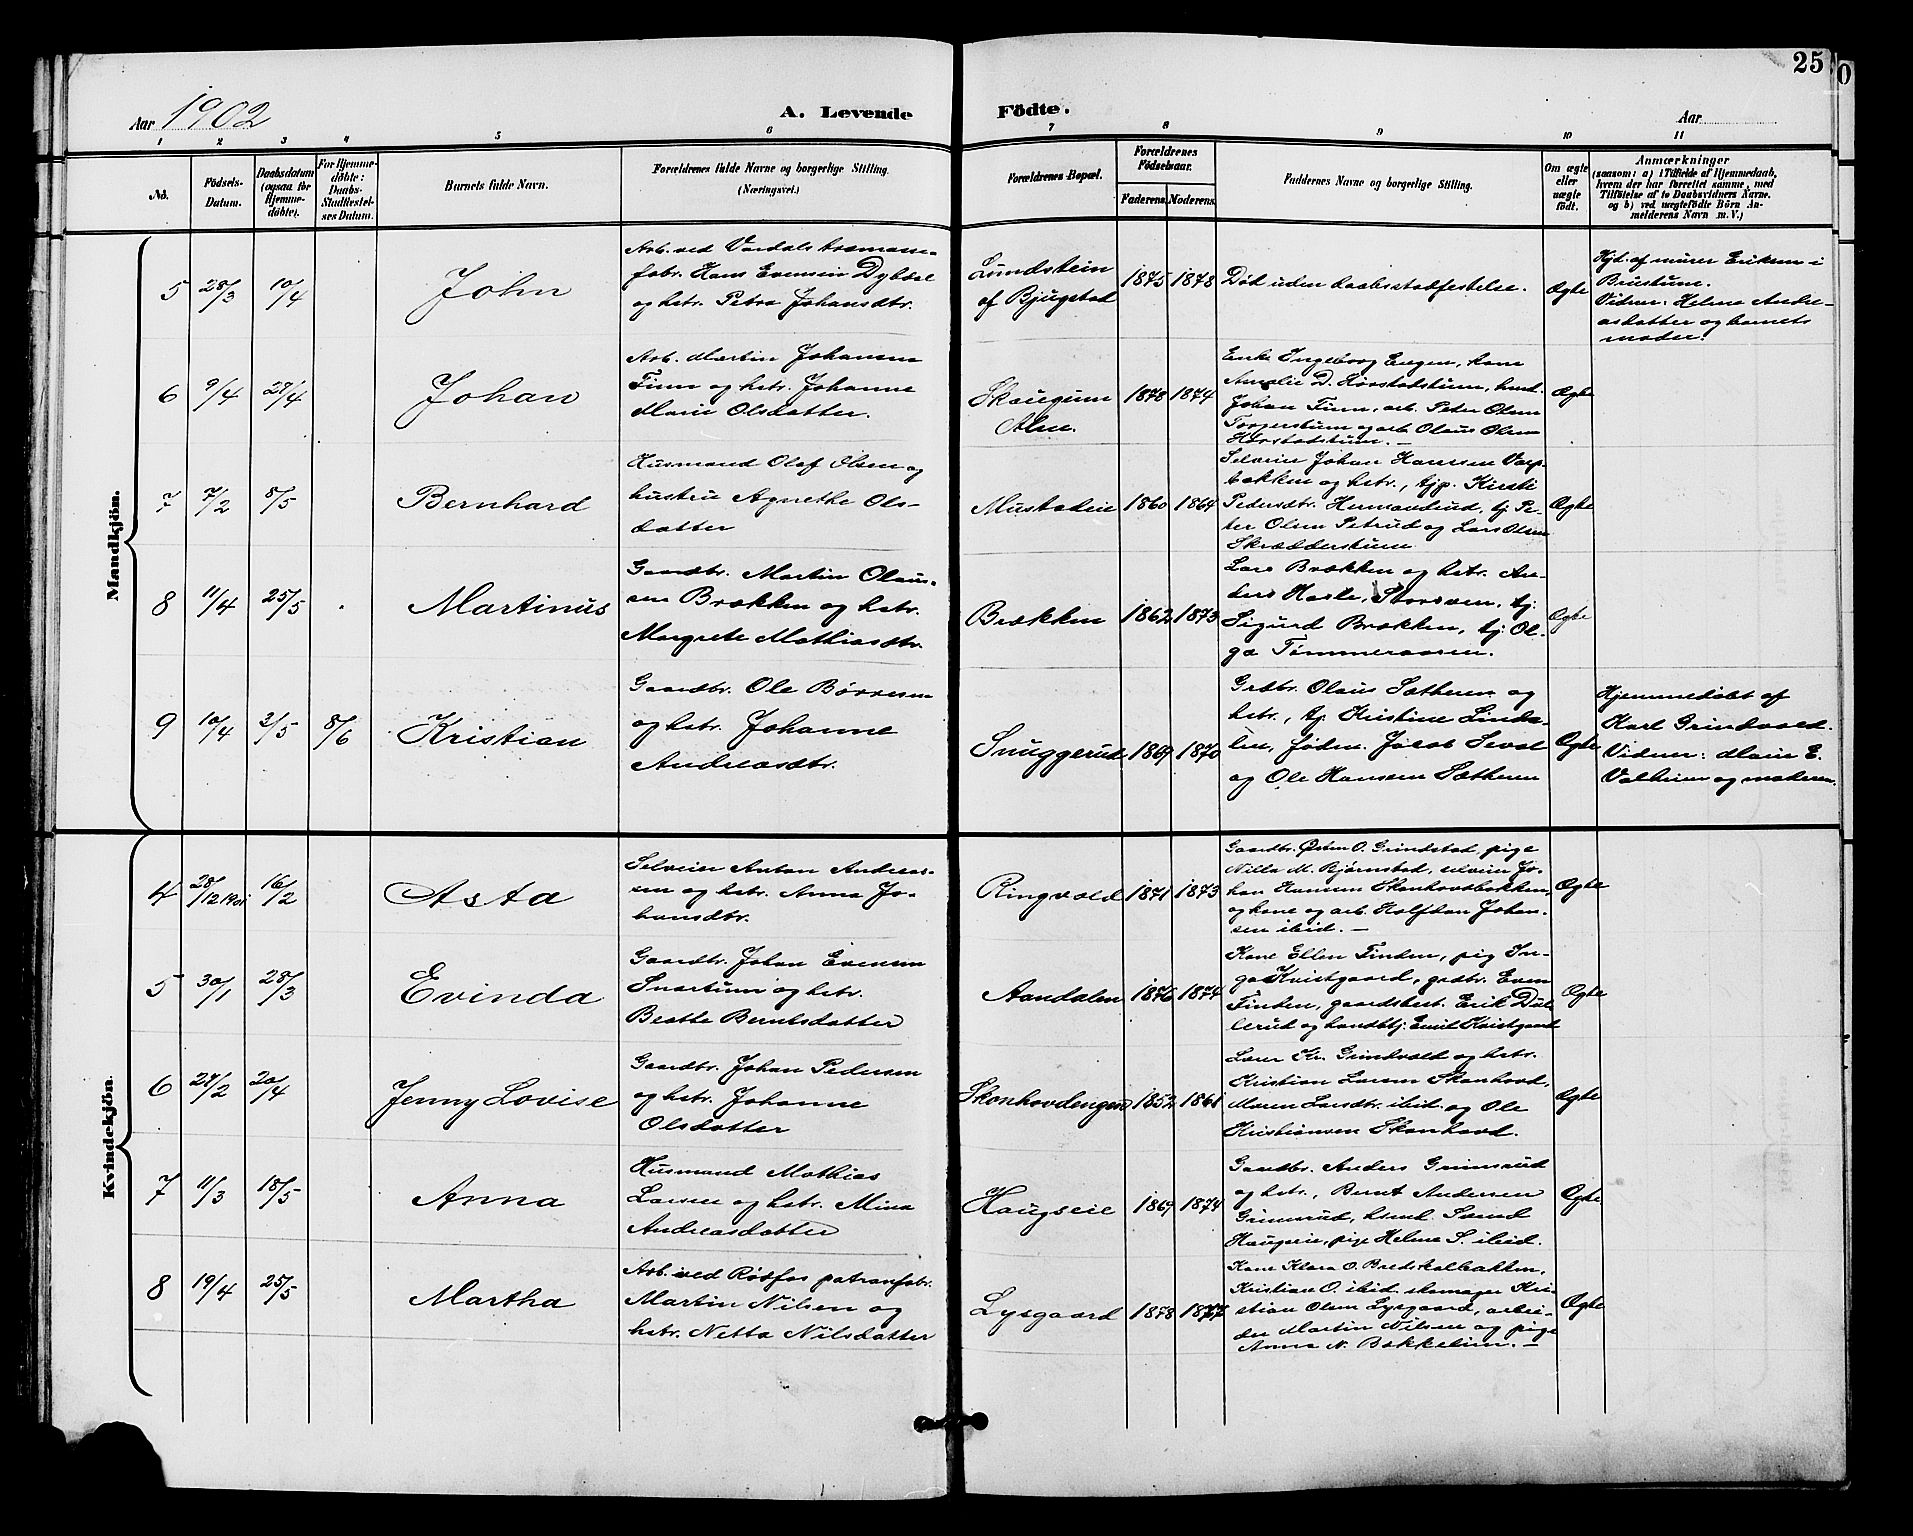 25
0
Aar 1902
A. Levende Födte.
Aar
1 2 3 4 5 6 7 8 9 10 11
No.
Födsels-
Datum.
Daabsdatum
(ogsaa for
Hjemme-
döbte).
For Hjemme-
döbte:
Daabs-
Stadfæstel-
ses Datum.
Barnets fulde Navn.
Forældrenes fulde Navne og borgerlige Stilling.
(Næringsvei.)
Forældrenes Bopæl.
Forældrenes
Födselsaar.
Faderens. Moderens.
Faddernes Navne og borgerlige Stilling.
Om ægte
eller
uægte
født.
Anmærkninger
(saasom: a) i Tilfælde af Hjemmedaab,
hvem der har forrettet samme, med
Tilföielse af to Daabsvidners Navne.
og b) ved uægtefödte Börn An-
melderens Navn m. V.)
Mandkjön.
5 28/3 10/4
John
Arb. ved Vardals træmasse-
fabr. Hans Evensen Dybdal
og hstr. Petra Johansdtr.
Lundstein
af Bjugstad
1875 1878
Død uden daabsstadfestelse.
Ægte
Hjd. af murer Eriksen i
Brustuen.
Vidner: Helene Andre-
asdatter og barnets
moder.
6 9/4 27/4
Johan
Arb. Martin Johansen
Finn og hstr. Johanne
Marie Olsdatter.
Skaugum
Alm.
1878 1874
Enke Ingeborg Engen, kone
Amalie D. Hørstadstuen, husd.
Johan Finn, arb. Peter Olsen
Torgerstuen og arb. Olaus Olsen
Hørstadstuen. —
Ægte
7 7/2 8/5
Bernhard
Husmand Olaf Olsen og
hustru Agnethe Ols-
datter
Mustadeie
1860 1864
Selveier Johan Hanssen Vorp-
bakken og hstr., tjp. Kirsti
Pedersdtr. Hermanderud, tj. Pe-
ter Olsen Petrud og Lars Olsen
Skrædderstuen
Ægte
8 11/4 25/5
Martinus
Gaardbr. Martin Olaus-
sen Brækken og hstr.
Margrete Mathiasdtr.
Brækken
1862 1873
Lars Brækken og hstr. An-
ders Hasle, Storsven, tj.
Sigurd Brækken, tj. Ol-
ga Tømmeraasen.
Ægte
9 10/4 3/5 8/6
Kristian
Gaardbr. Ole Børresen
og hstr. Johanne
Andreasdtr.
Snuggerud
1869 1870
Grdbr. Olaus Sætheren og
hstr., tj. Kristine Linda-
len, Jøden. Jacob Seval
og Ole Hansen Sætheren
Ægte
Hjemmedøbt af
Karl Grindvold.
Vidner: Marie E.
Valheim og moderen.
Kvindekjön.
4 28/12 1901 16/2
Asta
Selveier Anton Andreas-
sen og hstr. Anna Jo-
hansdtr.
Ringvold
1871 1873
Gaardbr. Østen O. Grindstad, pige
Nilla M. Bjørnstad, selveier Jo-
han Hansen Skonhovdbakken,
og kone og arb. Halfdan Johan-
sen ibid. —
Ægte
5 30/1 28/3
Evinda
Gaardbr. Johan Evensen
Snartum og hstr.
Beatte Berntsdatter
Aandalen
1876 1874
Kone Ellen Finden, pig In-
ga Kvistgaard, gaardbr. Even
Finden, gaardbest. Erik Dul-
lerud og handbtj. Emil Kvistgaard
Ægte
6 27/2 20/4
Jenny Lovise
Gaardbr. Johan Pedersen
og hstr. Johanne
Olsdatter
Skonhovdengen
1852 1861
Lærer Kr. Grindvold og hstr.
Kristian Larsen Skonhovd,
Maren Larsdtr. ibid. og Ole
Kristiansen Skonhovd.
Ægte
7 11/3 18/5
Anna
Husmand Mathias
Larsen og hstr. Mina
Andreasdatter
Haugseie
1869 1874
Gaardbr. Anders Grimsrud
og hstr., Bernt Andersen
Grimsrud, husmd. Svend
Haugseie, pige Helene S. ibid.
Ægte
8 19/4 25/5
Martha
Arb. ved Rødfos patronfabr.
Martin Nilsen og
hstr. Netta Nilsdatter
Lysgaard
1878 1877
Kone Klara O. Bredskalbakken,
Kristiane O. ibid. skomager Kri-
stian Olsen Lysgaard, arbei-
der Martin Nilsen og pige
Anna N. Bækkelien. —
Ægte